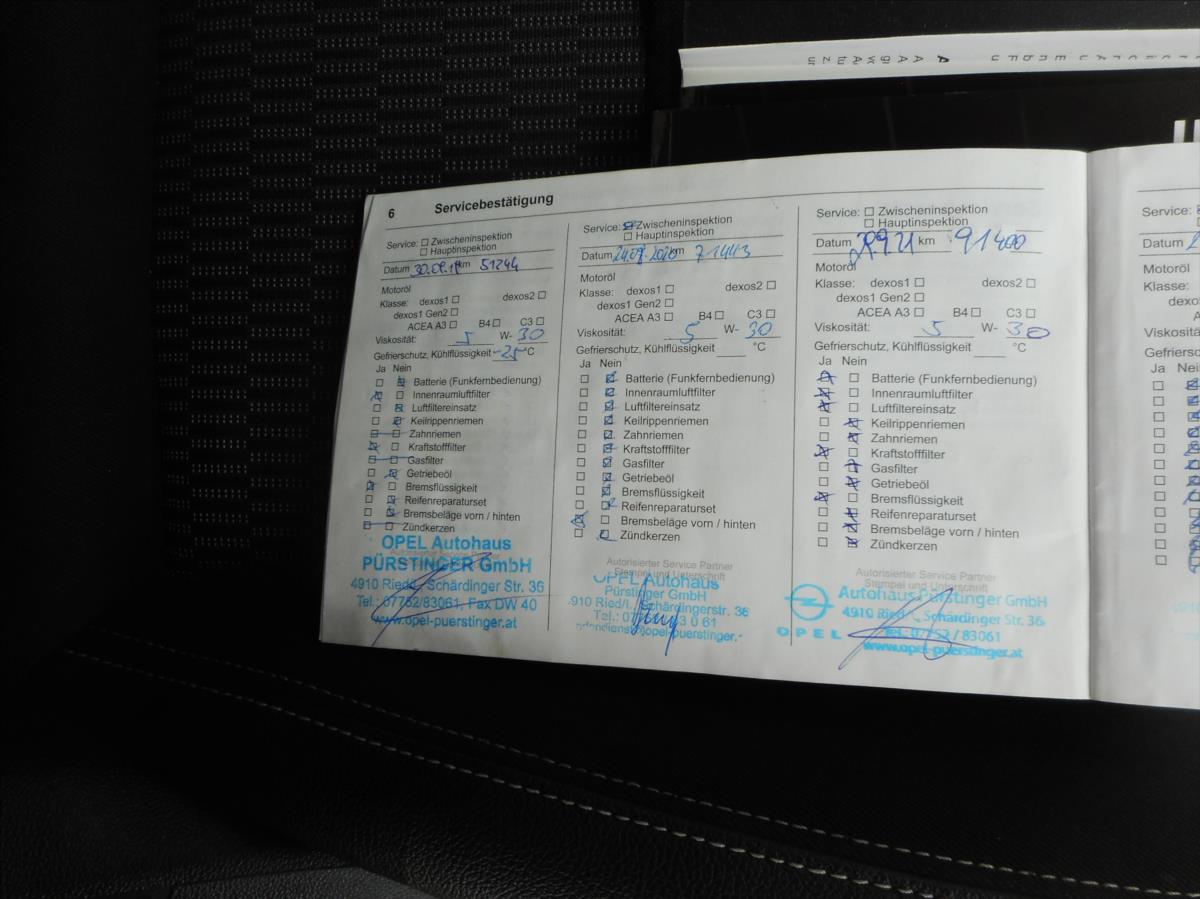 6 Servicebestätigung
Service: ☐ Zwischeninspektion
☐ Hauptinspektion
Datum 30.09.19 km 51244
Motoröl
Klasse: dexos1 ☐ dexos2 ☐
dexos1 Gen2 ☐
ACEA A3 ☐ B4 ☐ C3 ☐
Viskosität: 5 W- 30
Gefrierschutz, Kühlflüssigkeit -25 °C
Ja Nein
☐ ☒ Batterie (Funkfernbedienung)
☒ ☐ Innenraumluftfilter
☐ ☒ Luftfiltereinsatz
☐ ☒ Keilrippenriemen
☐ ☐ Zahnriemen
☒ ☐ Kraftstofffilter
☐ ☐ Gasfilter
☐ ☒ Getriebeöl
☒ ☐ Bremsflüssigkeit
☐ ☒ Reifenreparaturset
☐ ☒ Bremsbeläge vorn / hinten
☐ ☐ Zündkerzen
OPEL Autohaus
PÜRSTINGER GmbH
4910 Ried, Schärdinger Str. 36
Tel.: 07752/83061, Fax DW 40
www.opel-puerstinger.at
Service: ☒ Zwischeninspektion
☐ Hauptinspektion
Datum 24.09.2020 km 71443
Motoröl
Klasse: dexos1 ☐ dexos2 ☐
dexos1 Gen2 ☐
ACEA A3 ☐ B4 ☐ C3 ☐
Viskosität: 5 W- 30
Gefrierschutz, Kühlflüssigkeit °C
Ja Nein
☐ ☒ Batterie (Funkfernbedienung)
☐ ☒ Innenraumluftfilter
☐ ☒ Luftfiltereinsatz
☐ ☒ Keilrippenriemen
☐ ☒ Zahnriemen
☐ ☒ Kraftstofffilter
☐ ☒ Gasfilter
☐ ☒ Getriebeöl
☐ ☒ Bremsflüssigkeit
☐ ☒ Reifenreparaturset
☒ ☐ Bremsbeläge vorn / hinten
☐ ☒ Zündkerzen
Autorisierter Service Partner
Stempel und Unterschrift
OPEL Autohaus
Pürstinger GmbH
4910 Ried/I., Schärdingerstr. 36
opel-puerstinger.
Service: ☐ Zwischeninspektion
☐ Hauptinspektion
Datum 9.21 km 91400
Motoröl
Klasse: dexos1 ☐ dexos2 ☐
dexos1 Gen2 ☐
ACEA A3 ☐ B4 ☐ C3 ☐
Viskosität: 5 W- 30
Gefrierschutz, Kühlflüssigkeit °C
Ja Nein
☒ ☐ Batterie (Funkfernbedienung)
☒ ☐ Innenraumluftfilter
☒ ☐ Luftfiltereinsatz
☐ ☒ Keilrippenriemen
☐ ☒ Zahnriemen
☒ ☐ Kraftstofffilter
☐ ☒ Gasfilter
☐ ☒ Getriebeöl
☒ ☐ Bremsflüssigkeit
☐ ☒ Reifenreparaturset
☐ ☒ Bremsbeläge vorn / hinten
☐ ☒ Zündkerzen
Autorisierter Service Partner
Stempel und Unterschrift
Autohaus Pürstinger GmbH
4910 Ried Schärdinger Str. 36
OPEL Tel. 07752 / 83061
www.opel-puerstinger.at
Service:
Datum
Motoröl
Klasse:
Viskosität
Gefriersc
Ja Nei